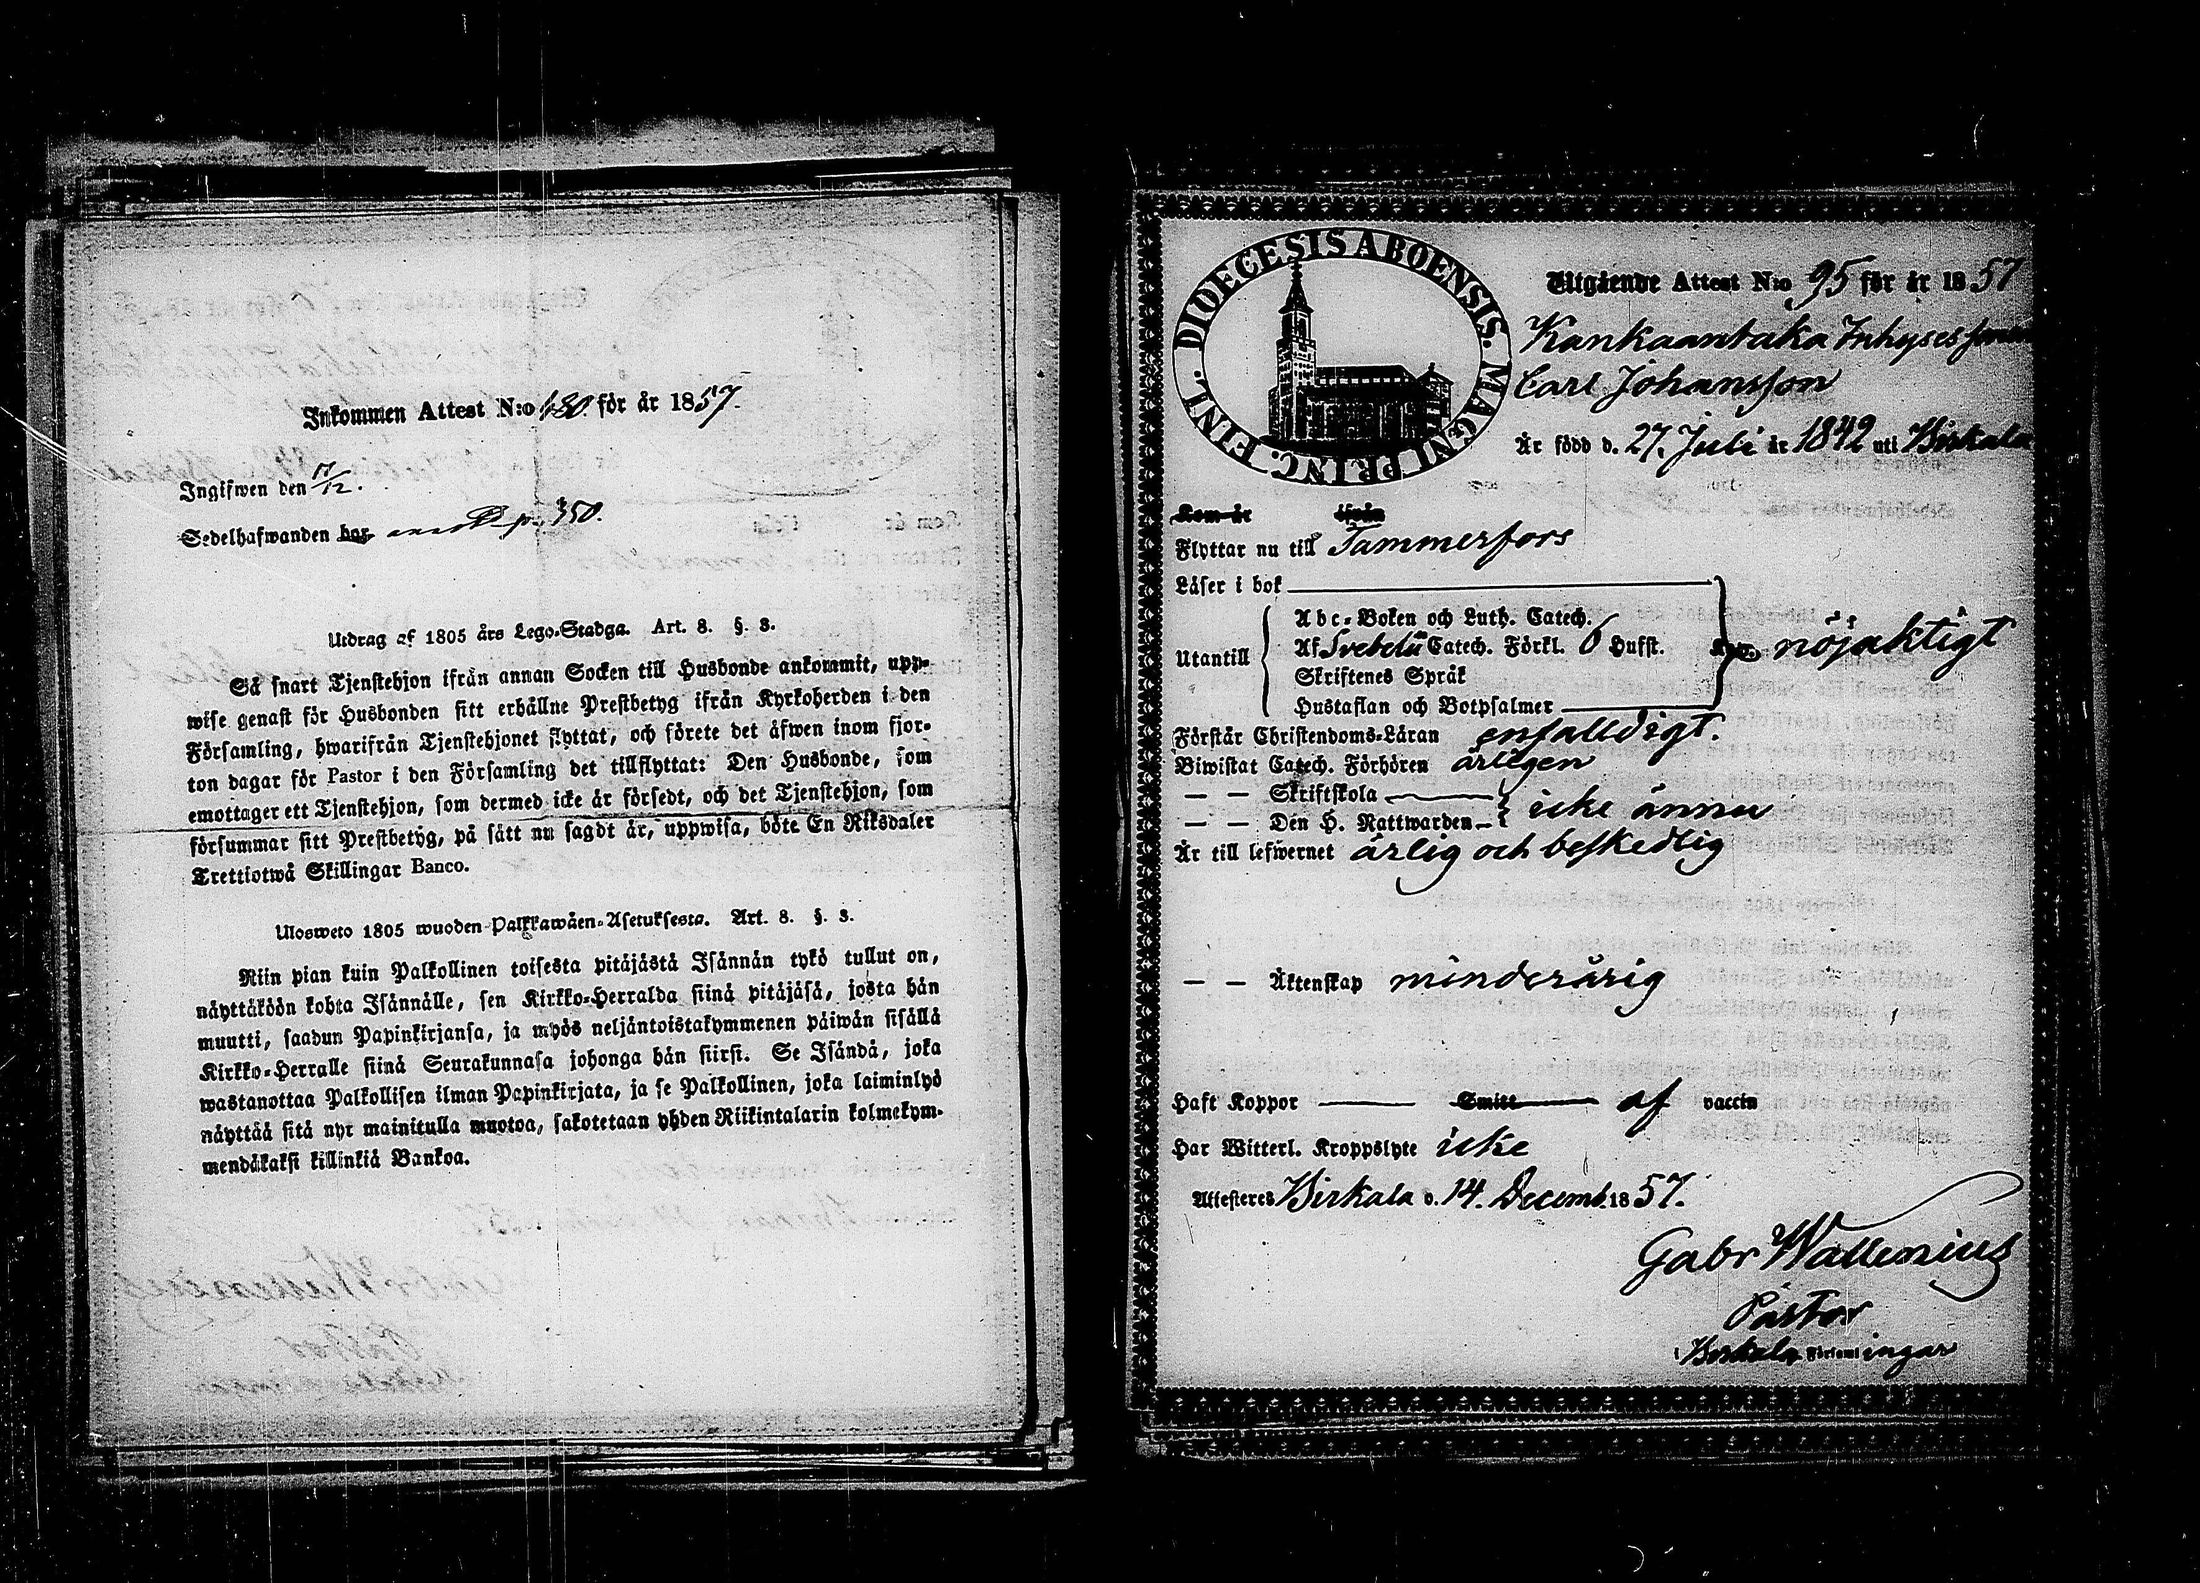 Inkommen Attest N:o 480 för år 1857.
Ingifwen den 17/12.
Sedelhafwanden har p. 350.
Utdrag af 1805 års Lego-Stadga. Art. 8. §. 3.
Så snart Tjenstehjon ifrån annan Socken till Husbonde ankommit, upp-
wise genast för Husbonden sitt erhållne Prestbetyg ifrån Kyrkoherden i den
Församling, hwarifrån Tjenstehjonet flyttat, och förete det äfwen inom fjor-
ton dagar för Pastor i den Församling det tillflyttat: Den Husbonde, som
emottager ett Tjenstehjon, som dermed icke är försedt, och det Tjenstehjon, som
försummar sitt Prestbetyg, på sätt nu sagdt är, uppwisa, böte En Riksdaler
Trettiotwå Skillingar Banco.
Ulosweto 1805 wuoden Palkkawäen-Asetuksesta. Art. 8. §. 3.
Niin pian kuin Palkollinen toisesta pitäjästä Isännän tykö tullut on,
näyttäköön kohta Isännälle, sen Kirkko-Herralda siinä pitäjäsä, josta hän
muutti, saadun Papinkirjansa, ja myös neljäntoistakymmenen päiwän sisällä
Kirkko-Herralle siinä Seurakunnasa johonga hän siirsi. Se Isändä, joka
wastanottaa Palkollisen ilman Papinkirjata, ja se Palkollinen, joka laiminlyö
näyttää sitä nyt mainitulla muotoa, sakotetaan yhden Riikintalarin kolmekym-
mendäkaksi killinkiä Bankoa.
DIOECESIS ABOENSIS. MAGNI PRINC. FINL.
Utgående Attest N:o 95 för år 1857
Kankaantaka Inhyses
Carl Johansson
Är född d. 27. Juli år 1842 uti Birkala
Kom år ifrån
Flyttar nu till Tammerfors
Läser i bok
Utantill
Abc-Boken och Luth. Catech.
Af Svebelii Catech. Förkl. 6 Hufst. nöjaktigt
Skriftenes Språk
Hustaflan och Botpsalmer
Förstår Christendoms-Läran enfalldigt.
Biwistat Catech. Förhören årligen
— — Skriftskola
— — Den H. Nattwarden icke ännu
Är till lefwernet ärlig och beskedlig
— — Äktenskap minderårig
Haft Koppor Smitt af vaccin
Har Witterl. Kroppslyte icke
Attesteres Birkala d. 14. Decemb. 1857.
Gabr Wallenius
Pastor
i Birkala Församlingar